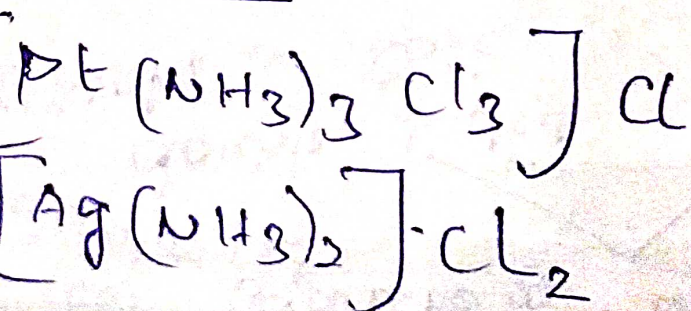 [Pt(NH3)3 Cl3]Cl
[Ag(NH3)2]·Cl2